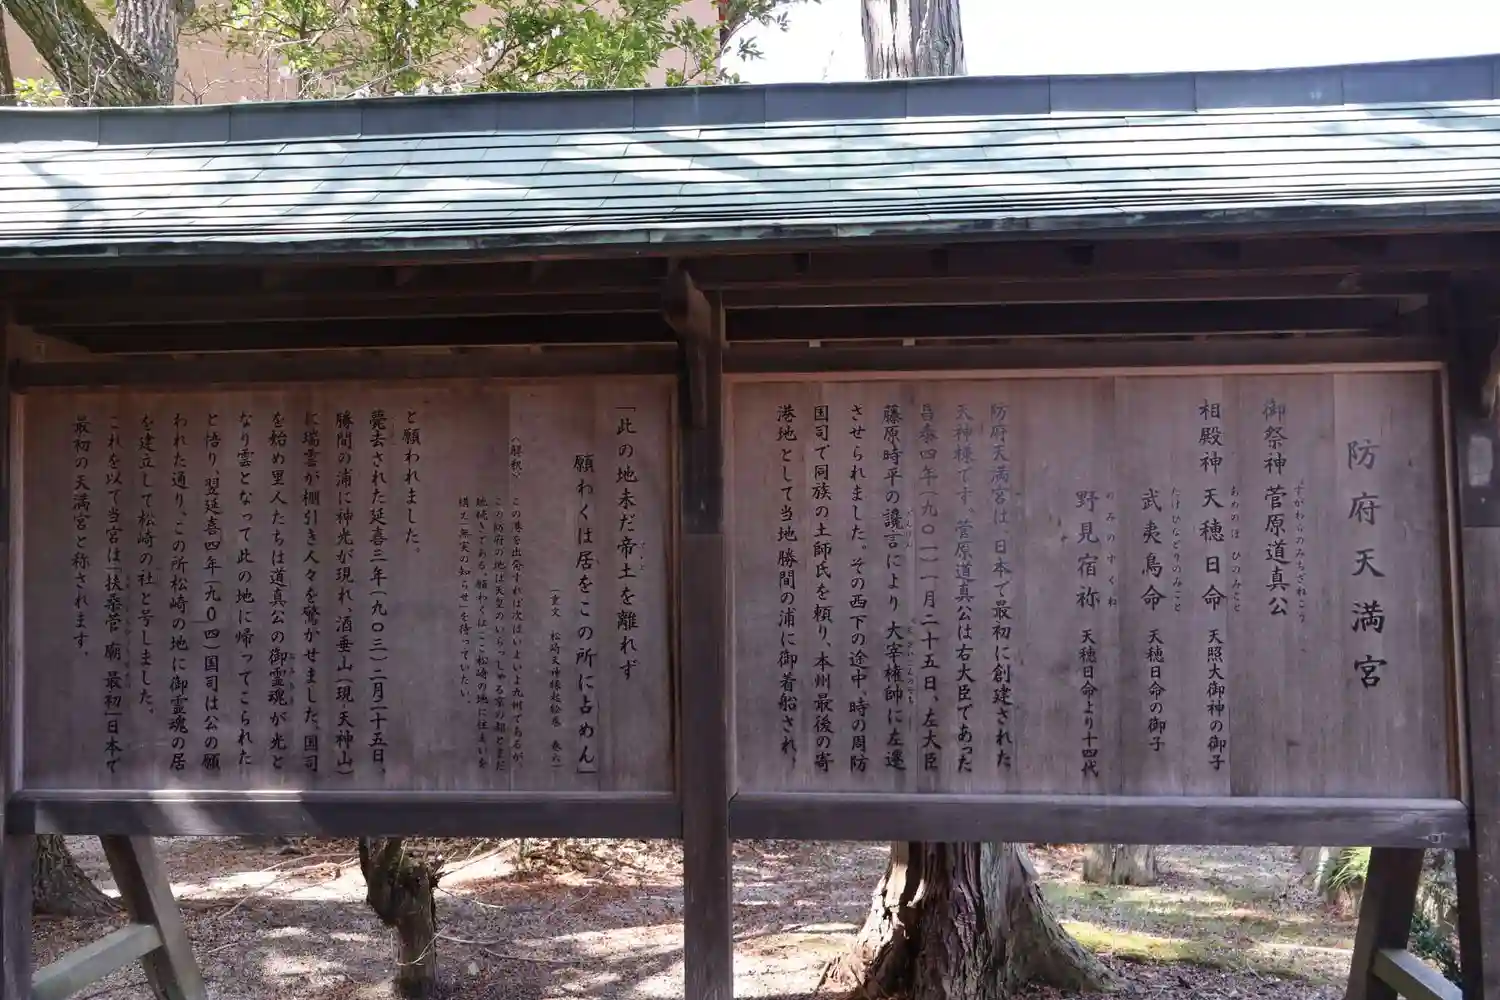 防府天満宮
御祭神 菅原道真公
すがわらのみちざねこう
相殿神 天穂日命 天照大御神の御子
あめのほひのみこと
武夷鳥命 天穂日命の御子
たけひなどりのみこと
野見宿祢 天穂日命より十四代
のみのすくね
防府天満宮は日本で最初に創建された
天神様です。菅原道真公は右大臣であった
昌泰四年(九〇一)一月二十五日、左大臣
藤原時平の讒言により大宰権帥に左遷
ざんげん
させられました。その西下の途中、時の周防
国司で同族の土師氏を頼り、本州最後の寄
港地として当地勝間の浦に御着船され、
「此の地未だ帝土を離れず
願わくは居をこの所に占めん」
(重文 松崎天神縁起絵巻 巻六)
〈解釈〉
この港を出発すれば次はいよいよ九州であるが、
この防府の地は天皇のいらっしゃる京の都とまだ
地続きである。願わくはここ松崎の地に住まいを
構え「無実の知らせ」を待っていたい。
と願われました。
薨去された延喜三年(九〇三)二月二十五日、
勝間の浦に神光が現れ、酒垂山(現・天神山)
に瑞雲が棚引き人々を驚かせました。国司
を始め里人たちは道真公の御霊魂が光と
なり雲となって此の地に帰ってこられた
と悟り、翌延喜四年(九〇四)国司は公の願
われた通り、この所松崎の地に御霊魂の居
を建立して松崎の社と号しました。
これを以て当宮は「扶桑菅廟最初」日本で
最初の天満宮と称されます。